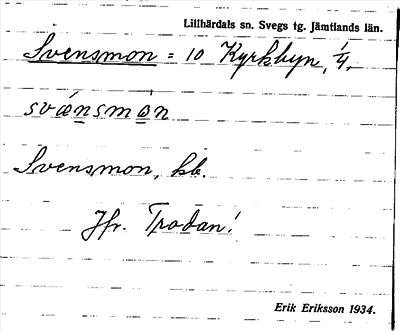 Lillhärdals sn. Svegs tg. Jämtlands län.
Svensmon = 10 Kyrkbyn, 1/4,
svænsmòn
Svensmon, kb.
Jfr. Trodan!
Erik Eriksson 1934.